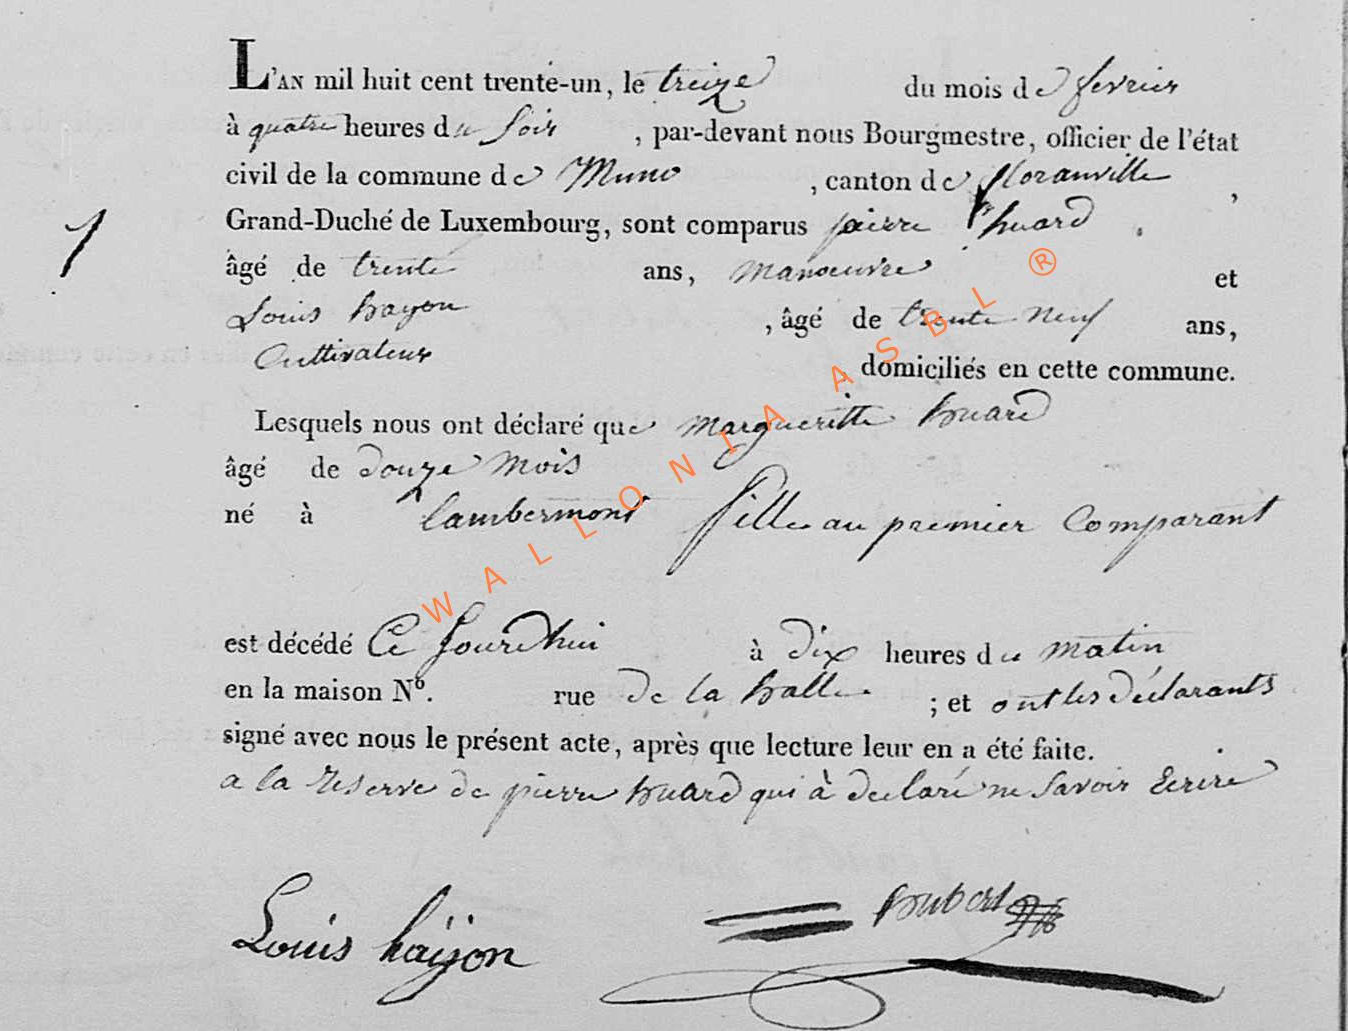 L'AN mil huit cent trente-un, le treize du mois de fevrier
à quatre heures du soir , par-devant nous Bourgmestre, officier de l'état
civil de la commune de Muno , canton de floranville ,
Grand-Duché de Luxembourg, sont comparus pierre huard ,
âgé de trente ans, manoeuvre et
Louis hayon , âgé de trente neuf ans,
Cultivateur domiciliés en cette commune.
1
Lesquels nous ont déclaré que margueritte huard
âgé de douze mois
né à lambermont fille au premier Comparant
est décédé Ce Jourdhui à dix heures du matin
en la maison No. rue de la halle ; et ont les déclarants
signé avec nous le présent acte, après que lecture leur en a été faite.
a la reserve de pierre huard qui à declaré ne savoir Ecrire
Louis haÿon hubert
WALLONIA ASBL ®